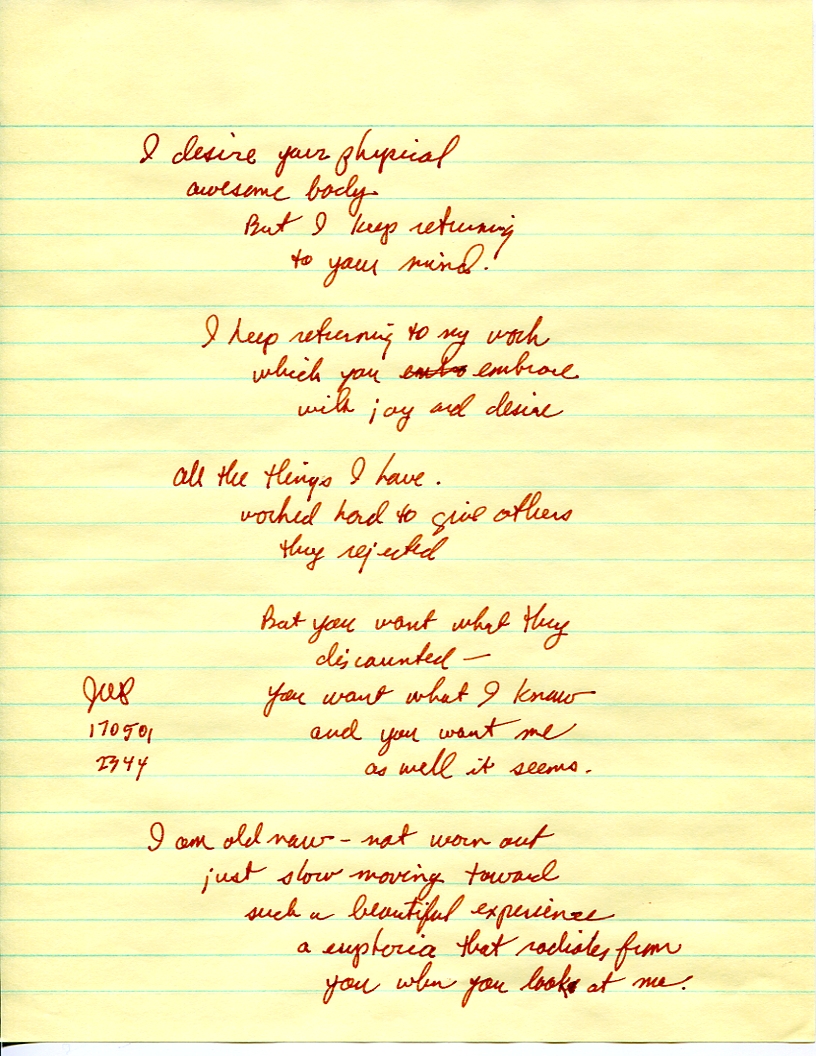 I desire your physical
awesome body
But I keep returning
to your mind!
I keep returning to my work
which you embrace
with joy and desire
all the things I have.
worked hard to give others
they rejected
But you want what they
discounted —
JWB
you want what I know
170501
and you want me
2344
as well it seems.
I am old now - not worn out
just slow moving toward
such a beautiful experience
a euphoria that radiates from
you when you look at me.